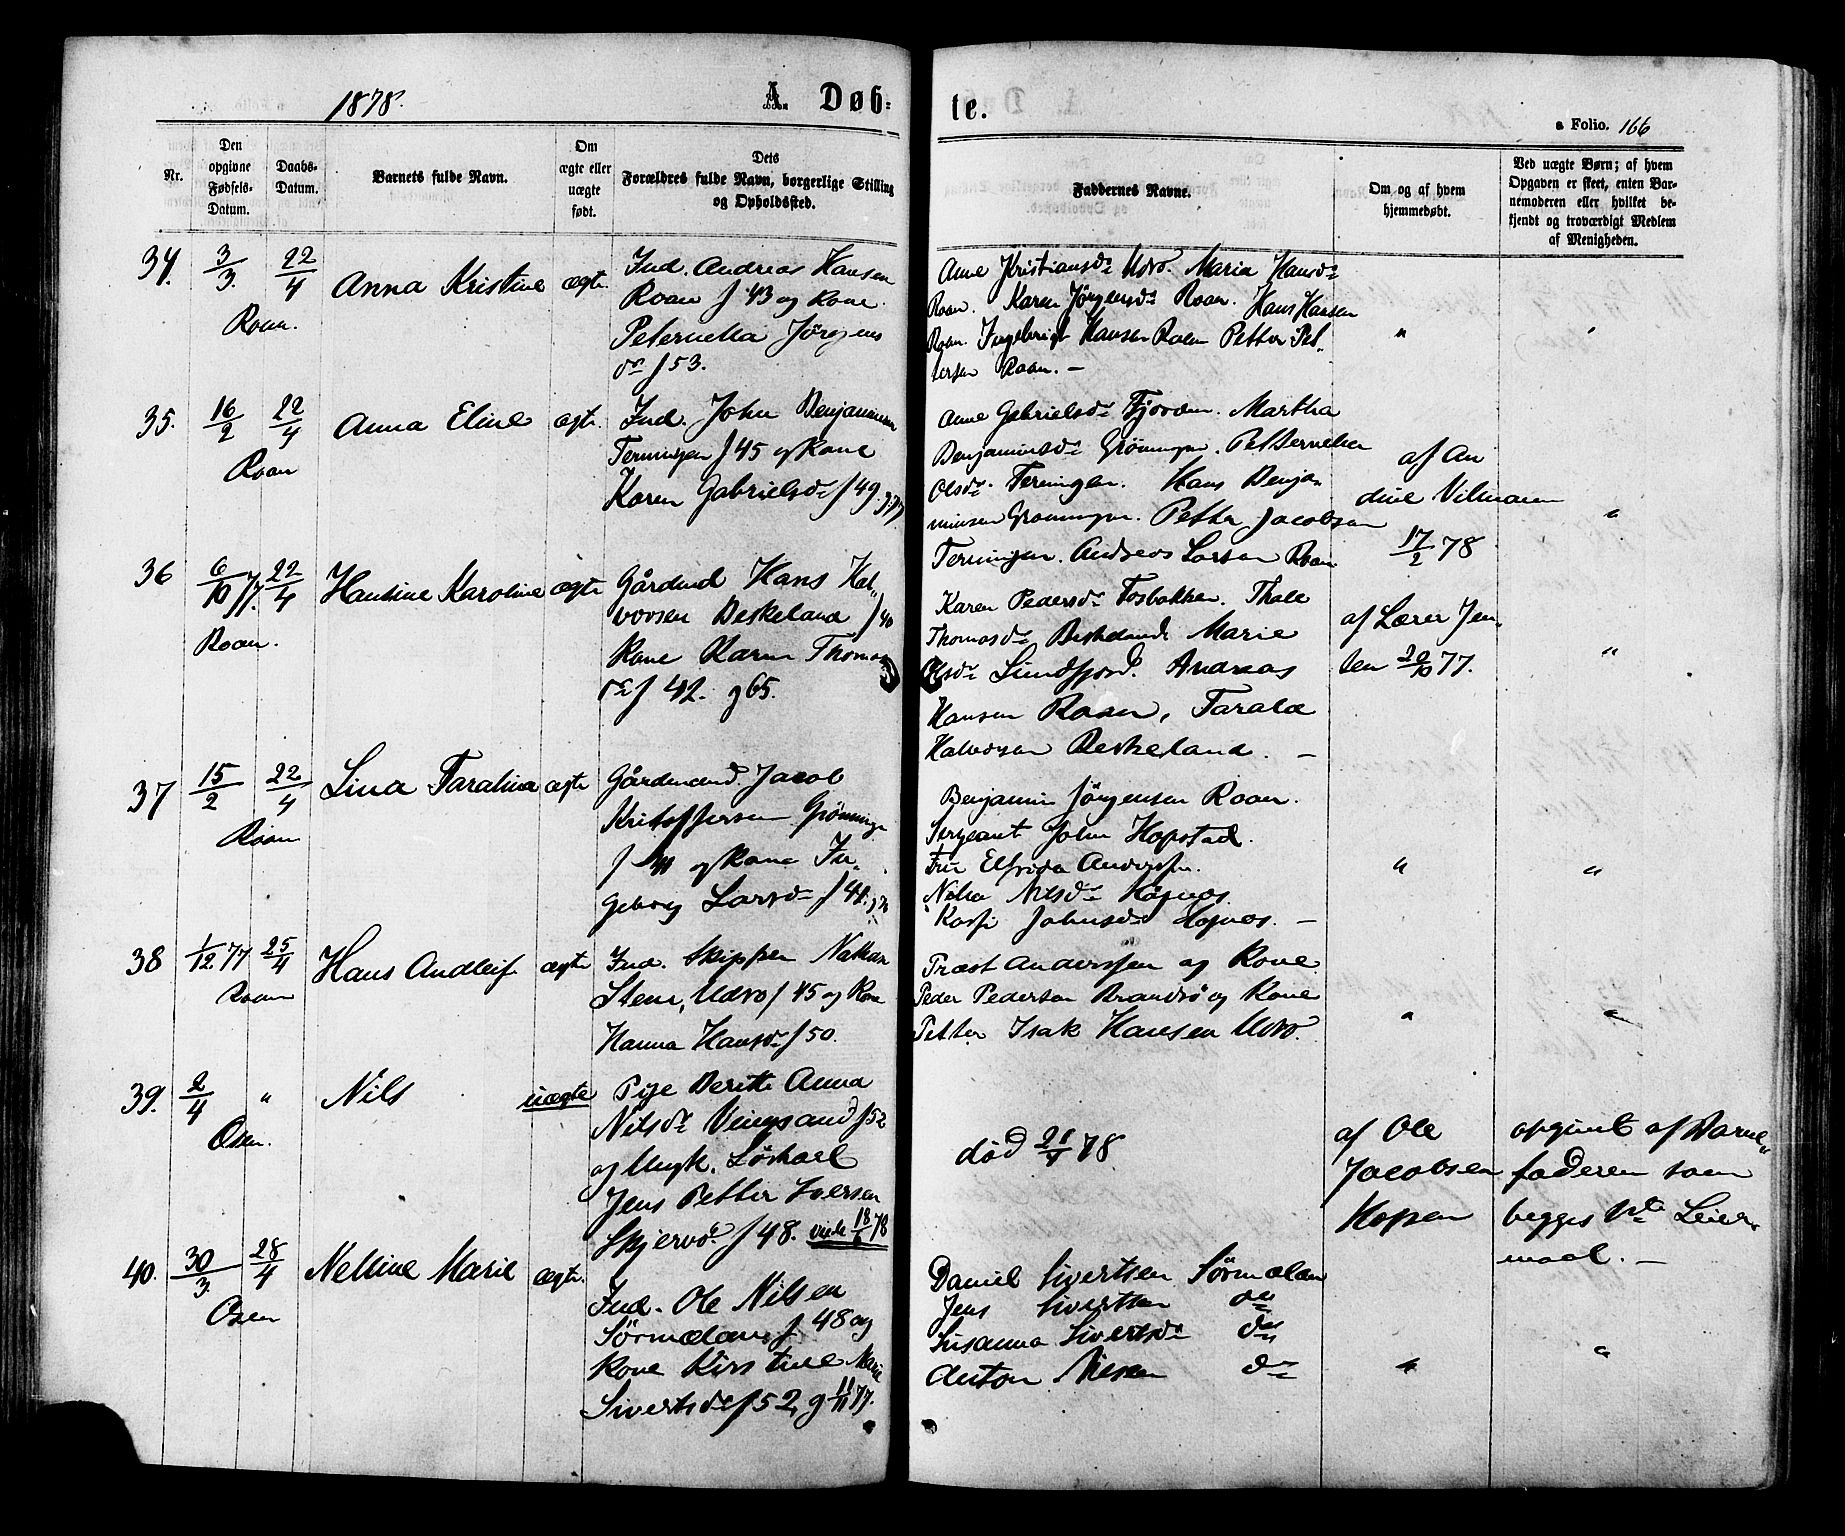 1878.
A. Døb-
te.
Folio. 166
Nr.
Den opgivne Fødsels-Datum.
Daabs-Datum.
Barnets fulde Navn.
Om ægte eller uægte født.
Dets Forældres fulde Navn, borgerlige Stilling og Opholdssted.
Faddernes Navne.
Om og af hvem hjemmedøbt.
Ved uægte Børn; af hvem Opgaven er skeet, enten Barnemoderen eller hvilket bekjendt og troværdigt Medlem af Menigheden.
34. 3/3. 22/4 Anna Kristine ægte
Roan.
Ind. Andreas Hansen
Roan f 43 og Kone
Peternella Jörgens
dr f 53.
Anne Kristiansdr Udvo. Maria Hansdr
Roan. Karen Jörgensdr Roan. Hans Hansen
Roan. Ingebrigt Hansen Roan Petter Pet-
tersen Roan. —
35. 16/2 22/4 Anna Eline ægte
Roan
Ind. John Benjaminsen
Terningen f 45 og Kone
Karen Gabrielsdr f 49.
Anne Gabrielsdr Fjorden. Martha
Benjaminsdr Grönningen. Petternella
Olsdr Terningen. Hans Benja-
minsen Grönningen. Petter Jacobsen
Terningen. Andreas Larsen Roan
af An
dine Vilmann
17/2 78
36 6/10 77. 22/4 Hansine Karoline ægte
Roan.
Gårdmd Hans Hal-
vorsen Beskeland f 40
Kone Karen Thomas
dr f 42. g 65.
Karen Pedersdr Fosbakken. Thale
Thomasdr Beskeland Marie
Olsdr Sundfjord. Andreas
Hansen Roan, Tarald
Halvorsen Beskeland. —
af Lærer Jen-
sen 20/10 77.
37 15/2 22/4 Lina Taraldina ægte
Roan
Gårdmand Jacob
Kristoffersen Grönninge
f 40 og Kone In-
geborg Larsdr f 41.
Benjamin Jörgensen Roan.
Sergeant John Hopstad.
Fru Elfrida Anderssen.
Nelia Nilsdr Hognes.
Johnsdr Hognes. —
38 1/12. 77 25/4 Hans Andleif ægte
Roan
Ind. Skipper Nathan
Stene, Udvo f 45 og Kone
Hanna Hansdr f 50.
Præst Anderssen og Kone
Peder Pedersen Brandsö og Kone
Petter Isak Hansen Udvo.
39. 2/4 " Nils uægte
Osen.
Pige Berith Anna
Nilsdr Vingsand f 52
og Ungk. Löskarl
Jens Petter Iversen
Skjervö. f 48. viede 18/6 78
død 21/4 78
af Ole
Jacobsen
Hopen
opgivet af Barne-
faderen som
begges 1ste Leier-
maal. —
40. 30/3. 28/4 Nelline Marie ægte.
Osen
Ind. Ole Nilsen
Sörmelan, f 48 og
Kone Kirstine Marie
Sivertsdr f 52, g 11/11 77.
Daniel Sivertsen Sörmelan
Jens Sivertsen do
Susanna Sivertsdr do
Anton Nilsen do